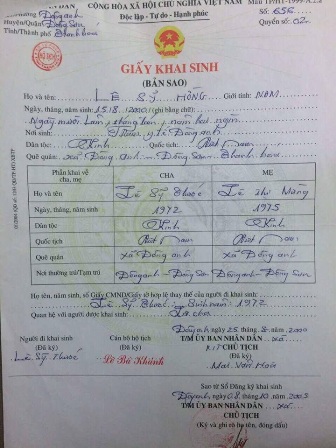 CỘNG HÒA XÃ HỘI CHỦ NGHĨA VIỆT NAM
Độc lập - Tự do - Hạnh phúc
Huyện/Quận Đông Sơn
Tỉnh/Thành phố Thanh hóa
Số: 656
Quyển số: 02
GIẤY KHAI SINH
(BẢN SAO)
Họ và tên: LÊ SỸ HỒNG Giới tính: NAM
Ngày, tháng, năm sinh (ghi bằng chữ)
Nơi sinh: Trạm y tế Đông anh
Dân tộc: Kinh Quốc tịch: Việt Nam
Quê quán: xã Đông anh - Đông Sơn - Thanh hóa
Phần khai về cha, mẹ CHA MẸ
Họ và tên Lê Sỹ Thước Lê Thị
Ngày, tháng, năm sinh 1972 1975
Dân tộc Kinh Kinh
Quốc tịch Việt Nam Việt Nam
Quê quán xã Đông anh xã Đông anh
Nơi thường trú/Tạm trú Đông anh - Đông Sơn Đông anh - Đông Sơn
Họ tên, năm sinh, số Giấy CMND/Giấy tờ hợp lệ thay thế của người đi khai sinh
Lê Sỹ Thước Sinh năm: 1972
Quan hệ với người được khai sinh:
Đông anh ngày 25 tháng 8 năm 2000
Người đi khai sinh Cán bộ hộ tịch T/M ỦY BAN NHÂN DÂN xã
(Đã ký) (Đã ký) CHỦ TỊCH
(Đã ký)
Lê Sỹ Thước Lê Bá Khánh
Sao từ Sổ Đăng ký khai sinh
T/M ỦY BAN NHÂN DÂN xã
CHỦ TỊCH
(Ký và ghi rõ họ tên, đóng dấu)